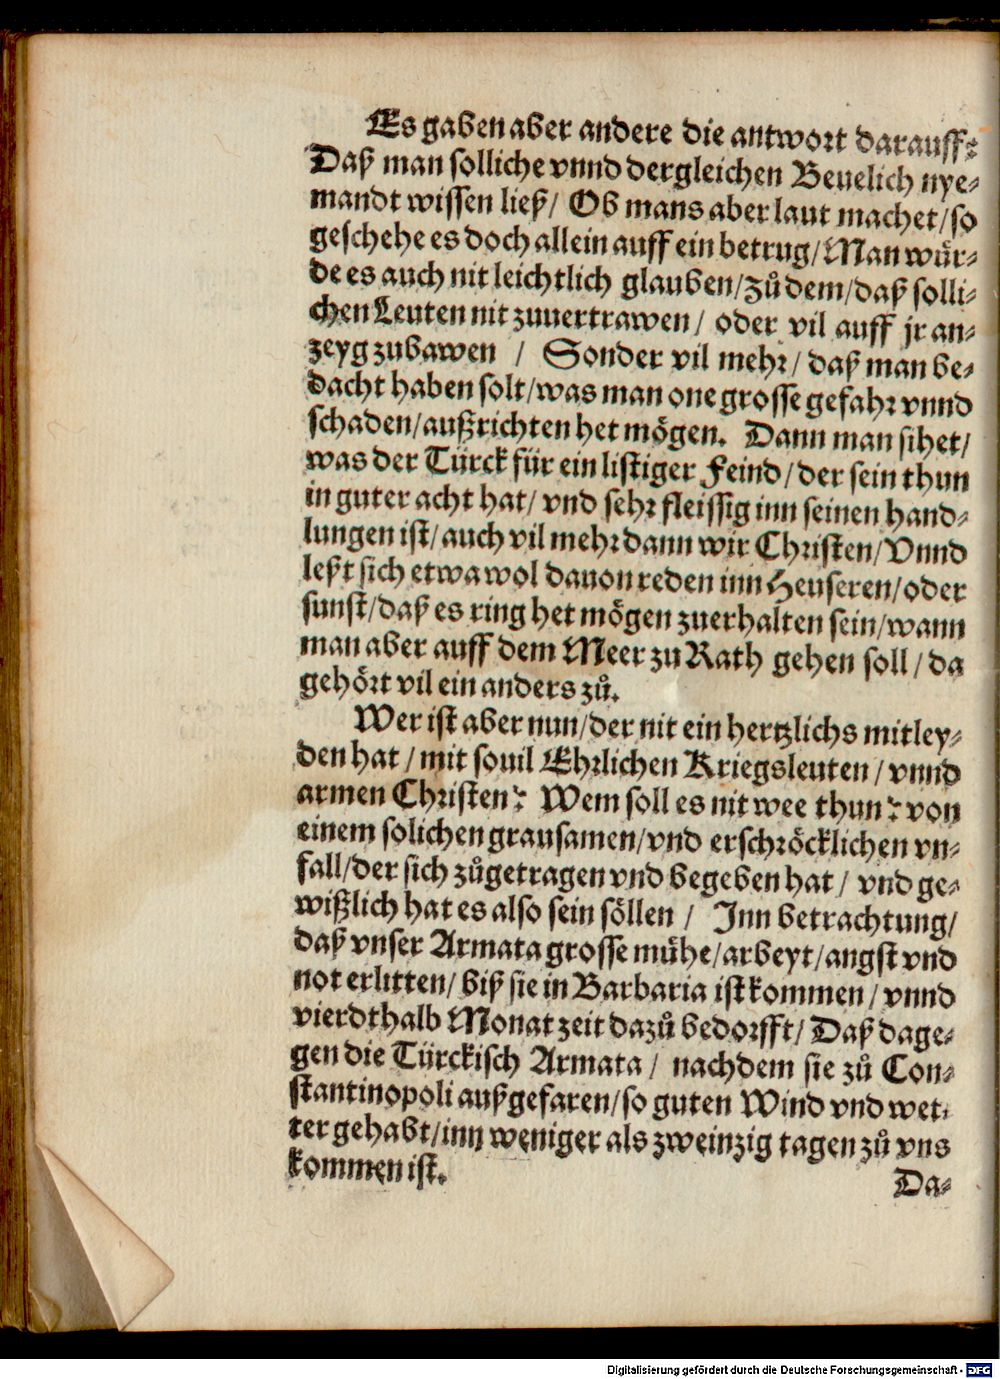 Es gaben aber andere die antwort darauff:
Daß man solliche vnnd dergleichen Beuelich nye-
mandt wissen ließ/ Ob mans aber laut machet/so
geschehe es doch allein auff ein betrug/Man wür-
de es auch nit leichtlich glauben/zů dem/daß solli-
chen Leuten nit zuuertrawen/ oder vil auff jr an-
zeyg zubawen / Sonder vil mehr/ daß man be-
dacht haben solt/was man one grosse gefahr vnnd
schaden/außrichten het mögen. Dann man sihet/
was der Türck für ein listiger Feind/der sein thun
in guter acht hat/ vnd sehr fleissig inn seinen hand-
lungen ist/auch vil mehr dann wir Christen/Vnnd
leßt sich etwa wol dauon reden inn Heuseren/oder
sunst/daß es ring het mögen zuerhalten sein/wann
man aber auff dem Meer zu Rath gehen soll/da
gehört vil ein anders zů.
Wer ist aber nun/der nit ein hertzlichs mitley-
den hat/mit souil Ehrlichen Kriegsleuten/vnnd
armen Christen? Wem soll es nit wee thun? von
einem solichen grausamen/vnd erschröcklichen vn-
fall/der sich zůgetragen vnd begeben hat/ vnd ge-
wißlich hat es also sein söllen / Inn betrachtung/
daß vnser Armata grosse mühe/arbeyt/angst vnd
not erlitten/biß sie in Barbaria ist kommen/vnnd
vierdthalb Monat zeit dazů bedorfft/Daß dage-
gen die Türckisch Armata/ nachdem sie zů Con-
stantinopoli außgefaren/so guten Wind vnd wet-
ter gehabt/inn weniger als zweinzig tagen zů vns
kommen ist.
Da-
Digitalisierung gefördert durch die Deutsche Forschungsgemeinschaft - DFG